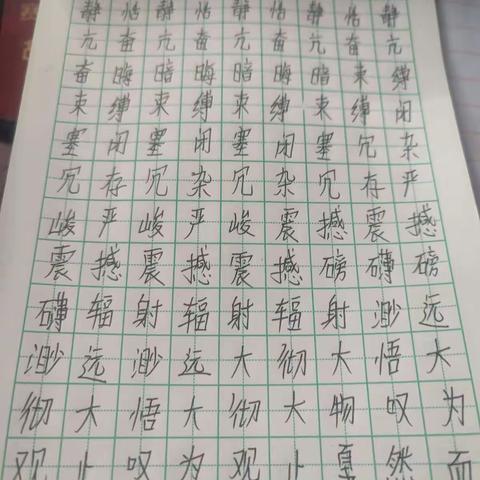 静恬静恬静恬静恬静
亢奋亢奋亢奋亢奋亢
奋晦暗晦暗晦暗束缚
束缚束缚束缚束缚闭
塞闭塞闭塞闭塞冗杂
冗存冗杂冗杂冗存严
峻严峻严峻震撼震撼
震撼震撼震撼磅礴磅
礴辐射辐射辐射渺远
渺远渺远大彻大悟大
彻大悟大彻大物叹为
观止叹为观止戛然而